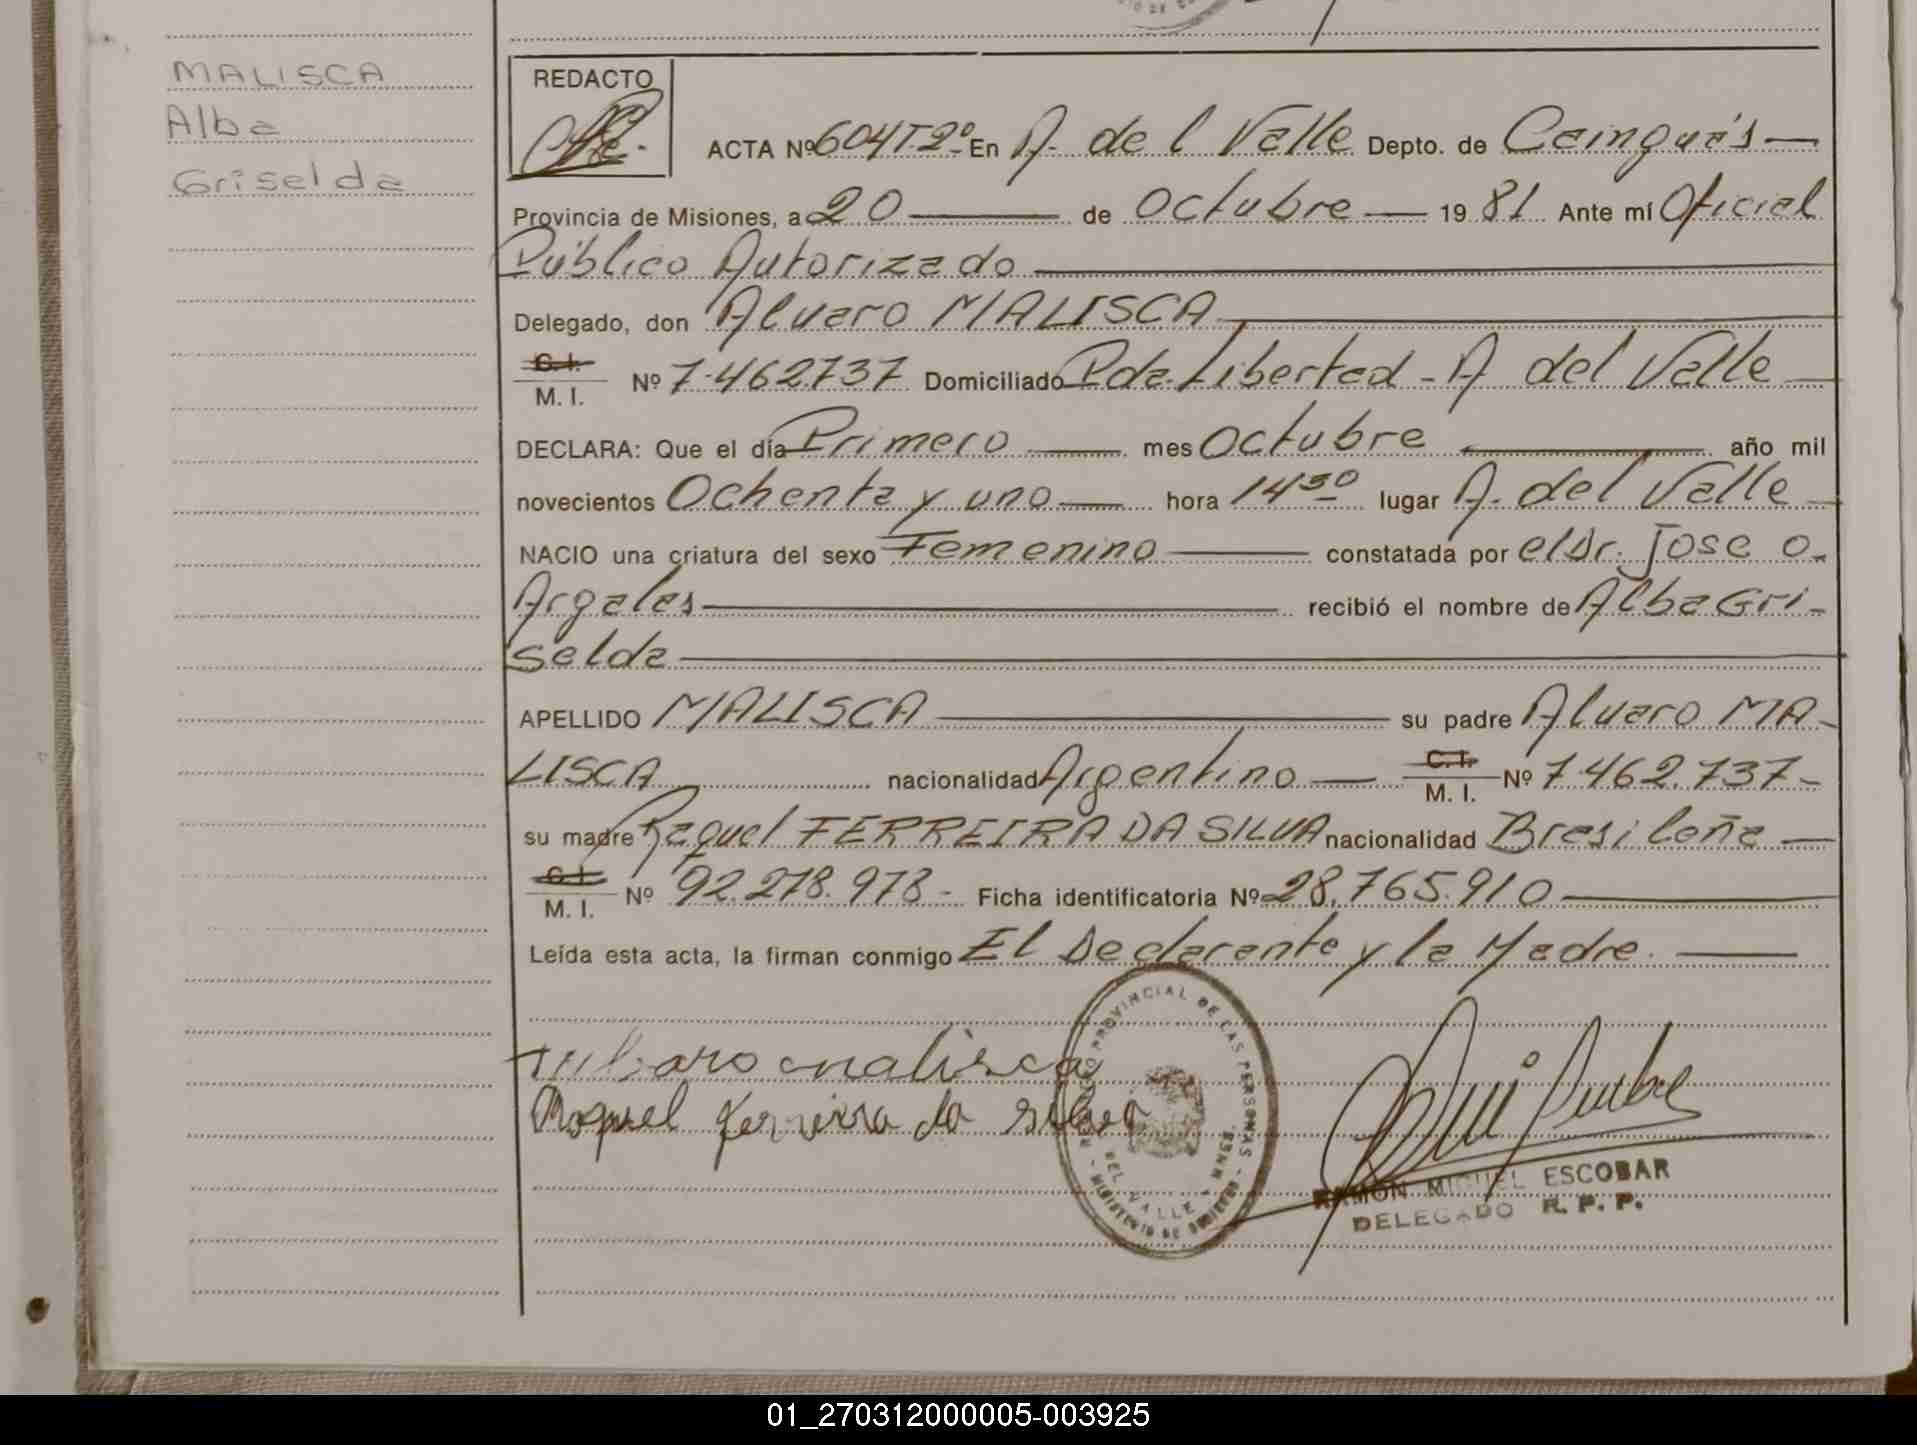 MALISCA
Alba
Griselda
REDACTO
ACTA Nº 604T.2º En A. del Valle Depto. de Cainguás
Provincia de Misiones, a 20 de Octubre 19 81 Ante mí Oficial
Público Autorizado
Delegado, don Alvaro MALISCA
C.I.
M. I. Nº 7.462737 Domiciliado Pda. Libertad - A del Valle
DECLARA: Que el día Primero mes Octubre año mil
novecientos Ochenta y uno hora 14 30 lugar A. del Valle
NACIO una criatura del sexo Femenino constatada por el Dr. Jose O.
Argales recibió el nombre de Alba Gri-
selda
APELLIDO MALISCA su padre Alvaro MA-
LISCA nacionalidad Argentino C.I. M. I. Nº 7.462.737-
su madre Raquel FERREIRA DA SILVA nacionalidad Brasileña
C.I. M. I. Nº 92.278.978- Ficha identificatoria Nº 28.765.910
Leída esta acta, la firman conmigo El Declarante y la Madre.
malisca
Raquel ferreira da silva
REGISTRO PROVINCIAL DE LAS PERSONAS
MINISTERIO DE GOBIERNO
DEL VALLE
RAMON MIGUEL ESCOBAR
DELEGADO R. P. P.
01_270312000005-003925